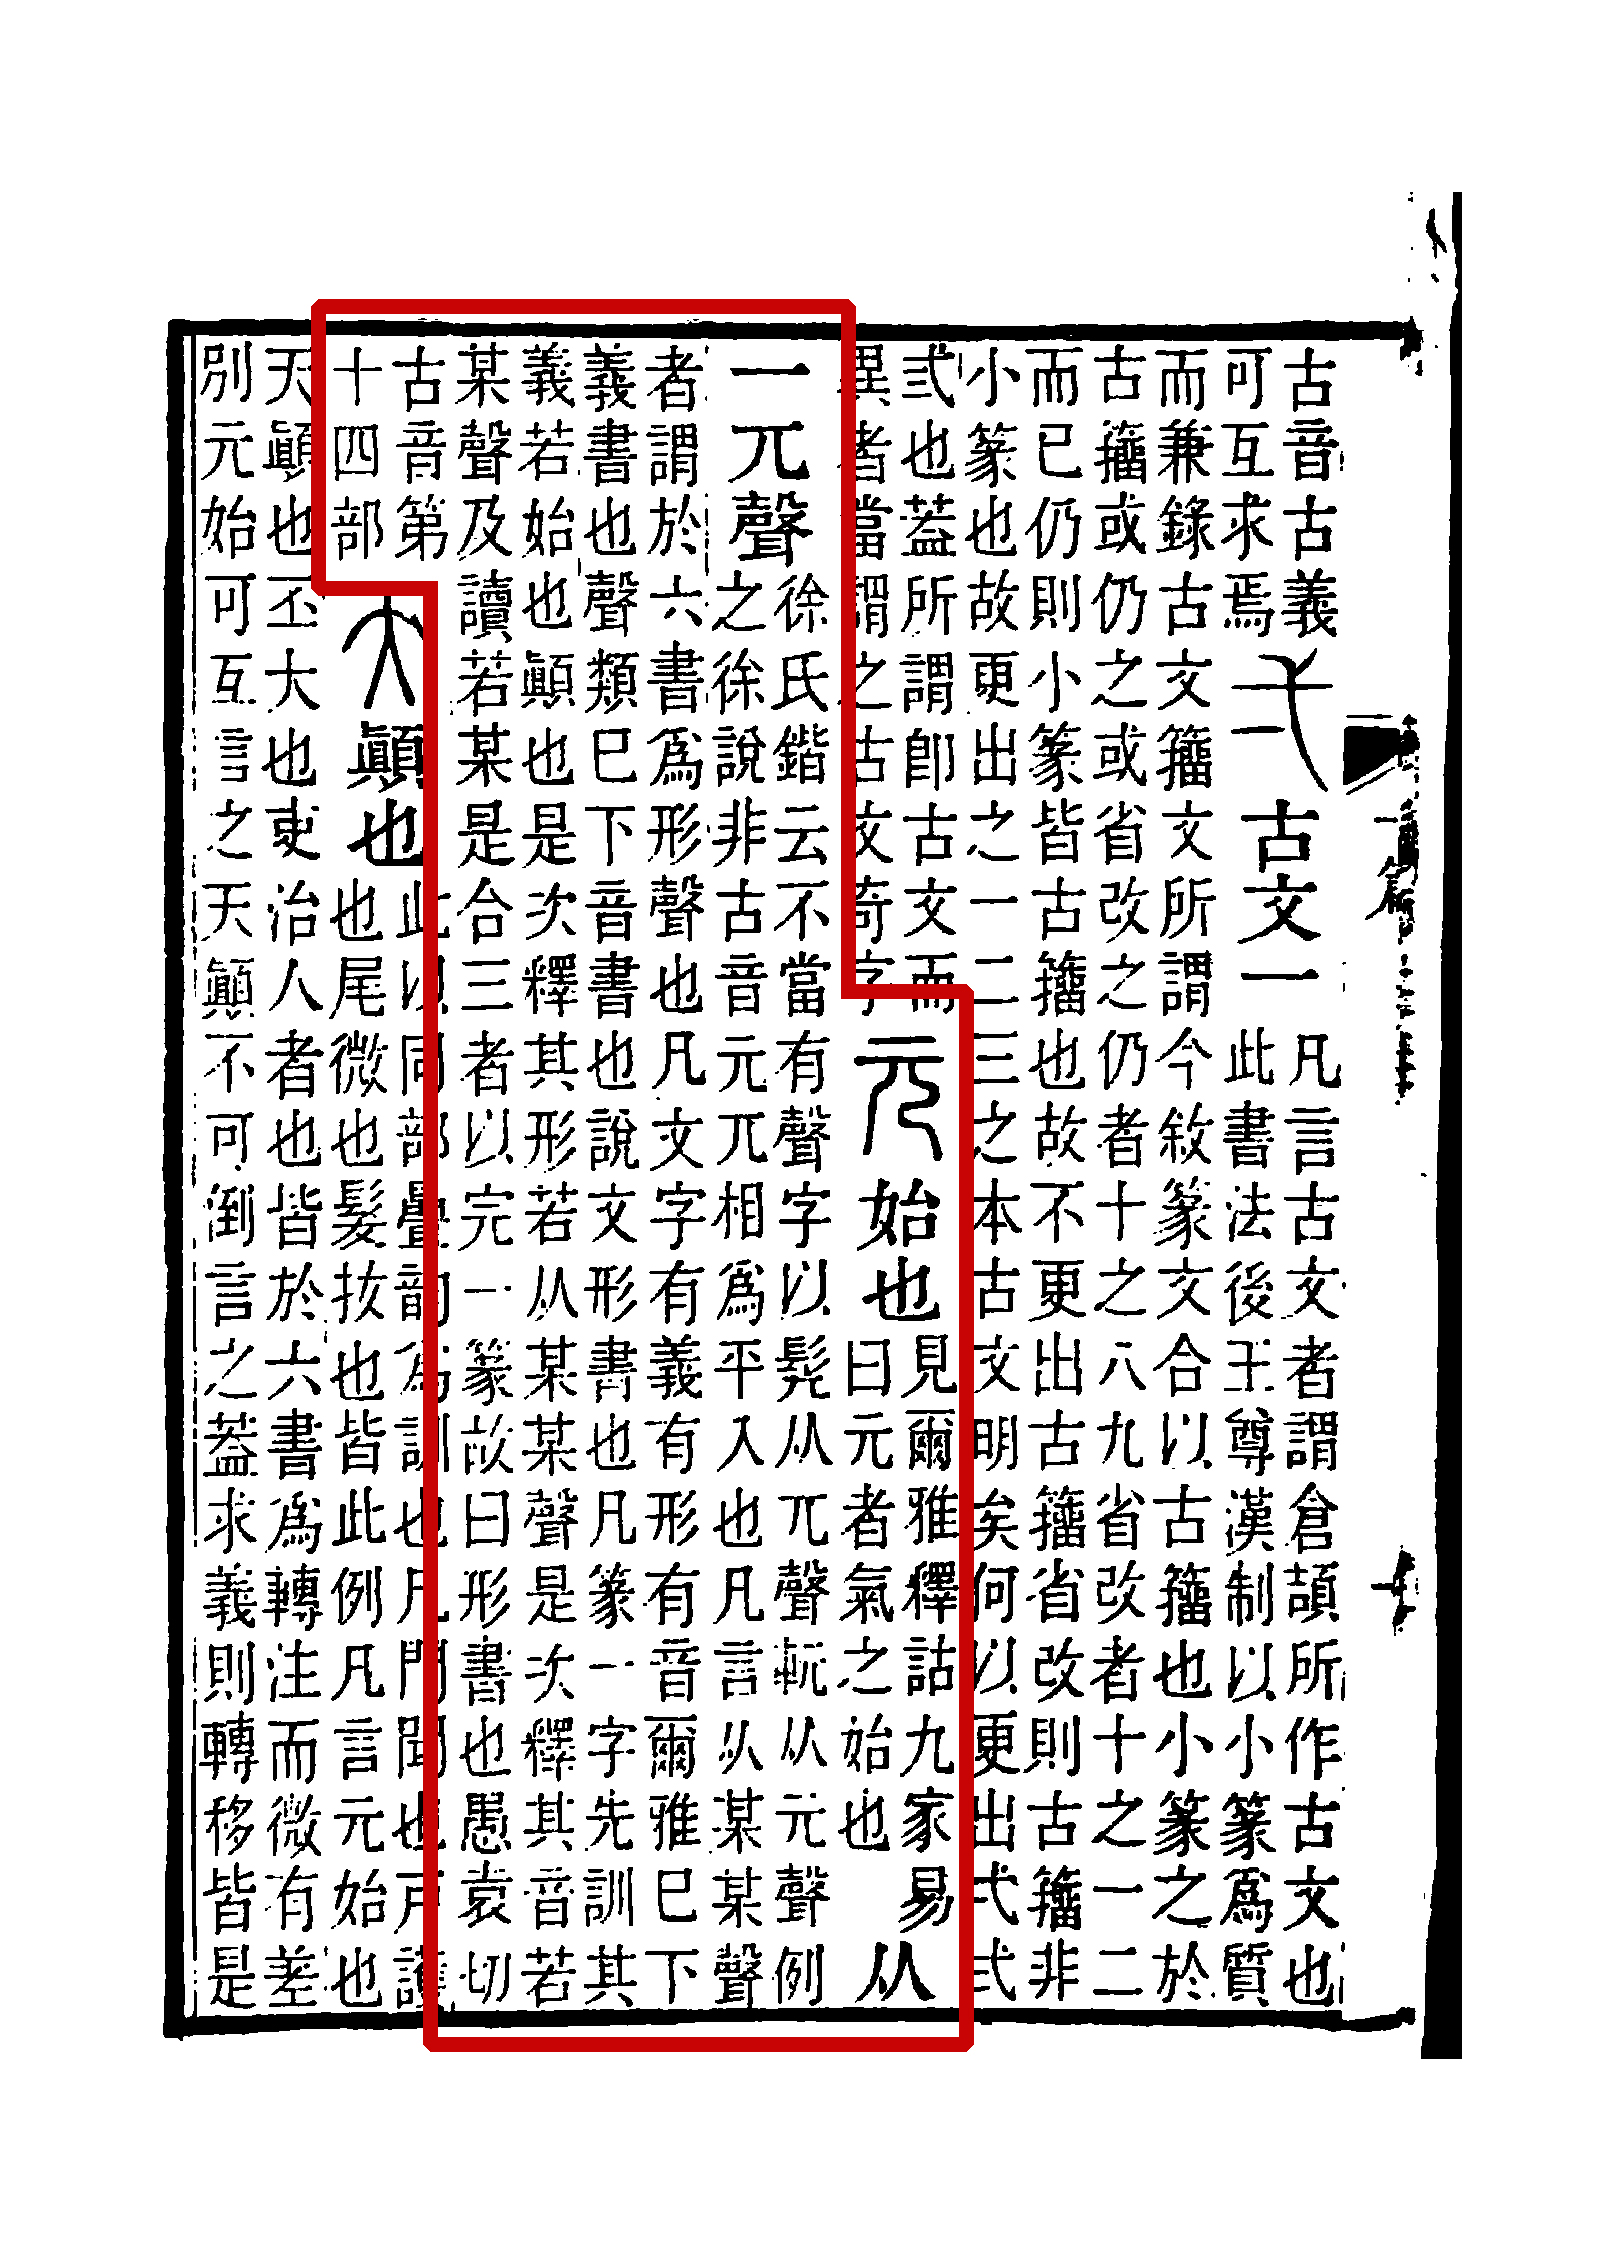 古音古義
可互求焉
弌古文一
凡言古文者謂倉頡所作古文也
此書法後王尊漢制以小篆爲質
而兼錄古文籒文所謂今敘篆文合以古籒也小篆之於
古籒或仍之或省改之仍者十之八九省改者十之一二
而已仍則小篆皆古籒也故不更出古籒省改則古籒非
小篆也故更出之一二三之本古文明矣何以更出弌弍
弎也蓋所謂卽古文而
異者當謂之古文奇字
元始也
見爾雅釋詁九家易
曰元者氣之始也
从
一兀聲
徐氏鍇云不當有聲字以髡从兀聲軏从元聲例
之徐說非古音元兀相爲平入也凡言从某某聲
者謂於六書爲形聲也凡文字有義有形有音爾雅巳下
義書也聲類巳下音書也說文形書也凡篆一字先訓其
義若始也顚也是次釋其形若从某某聲是次釋其音若
某聲及讀若某是合三者以完一篆故曰形書也愚袁切
古音第
十四部
天顚也
此㠯同部曡韵爲訓也凡門聞也戸護
也尾微也髮拔也皆此例凡言元始也
天顚也丕大也吏治人者也皆於六書爲轉注而微有差
別元始可互言之天顚不可倒言之蓋求義則轉移皆是